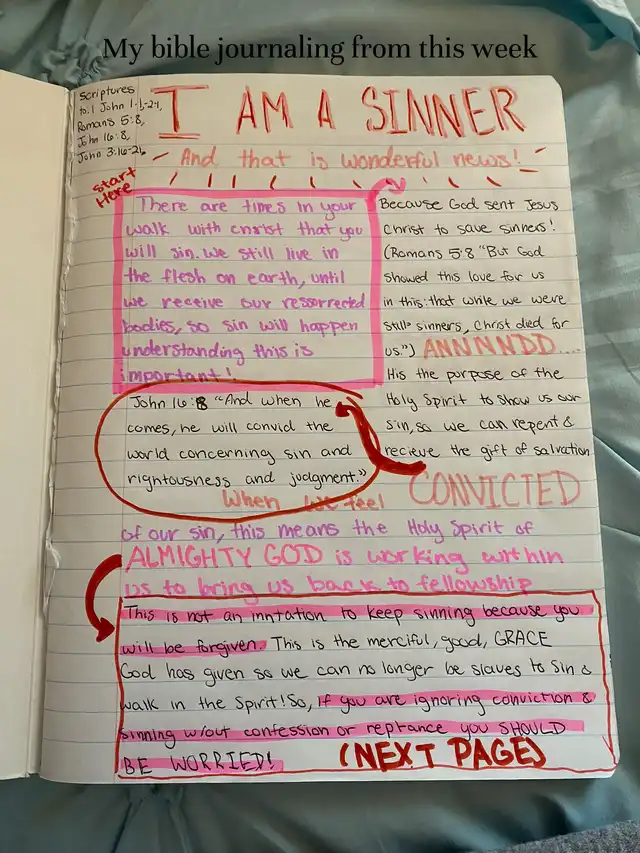 My bible journaling from this week
Scriptures
to: 1 John 1-1,-2-1,
Romans 5:8,
John 16:8,
John 3:16-21
I AM A SINNER
And that is wonderful news!
Start
Here
There are times in your
walk with christ that you
will sin. we still live in
the flesh on earth, until
we receive our ressorrected
bodies, so sin will happen
understanding this is
important!
Because God sent Jesus
Christ to save sinners!
(Romans 5:8 "But God
showed this love for us
in this: that while we were
still sinners, Christ died for
us.") ANNNNDD....
His the purpose of the
Holy Spirit to show us our
sin, so we can repent &
recieve the gift of salvation.
John 16:8 "And when he
comes, he will convid the
world concerning sin and
rightousness and judgment."
When we feel CONVICTED
of our sin, this means the Holy Spirit of
ALMIGHTY GOD is working within
us to bring us back to fellowship
This is not an invitation to keep sinning because you
will be forgiven. This is the merciful, good, GRACE
God has given so we can no longer be slaves to sin &
walk in the Spirit! So, if you are ignoring conviction &
sinning w/out confession or reptance you SHOULD
BE WORRIED!
(NEXT PAGE)